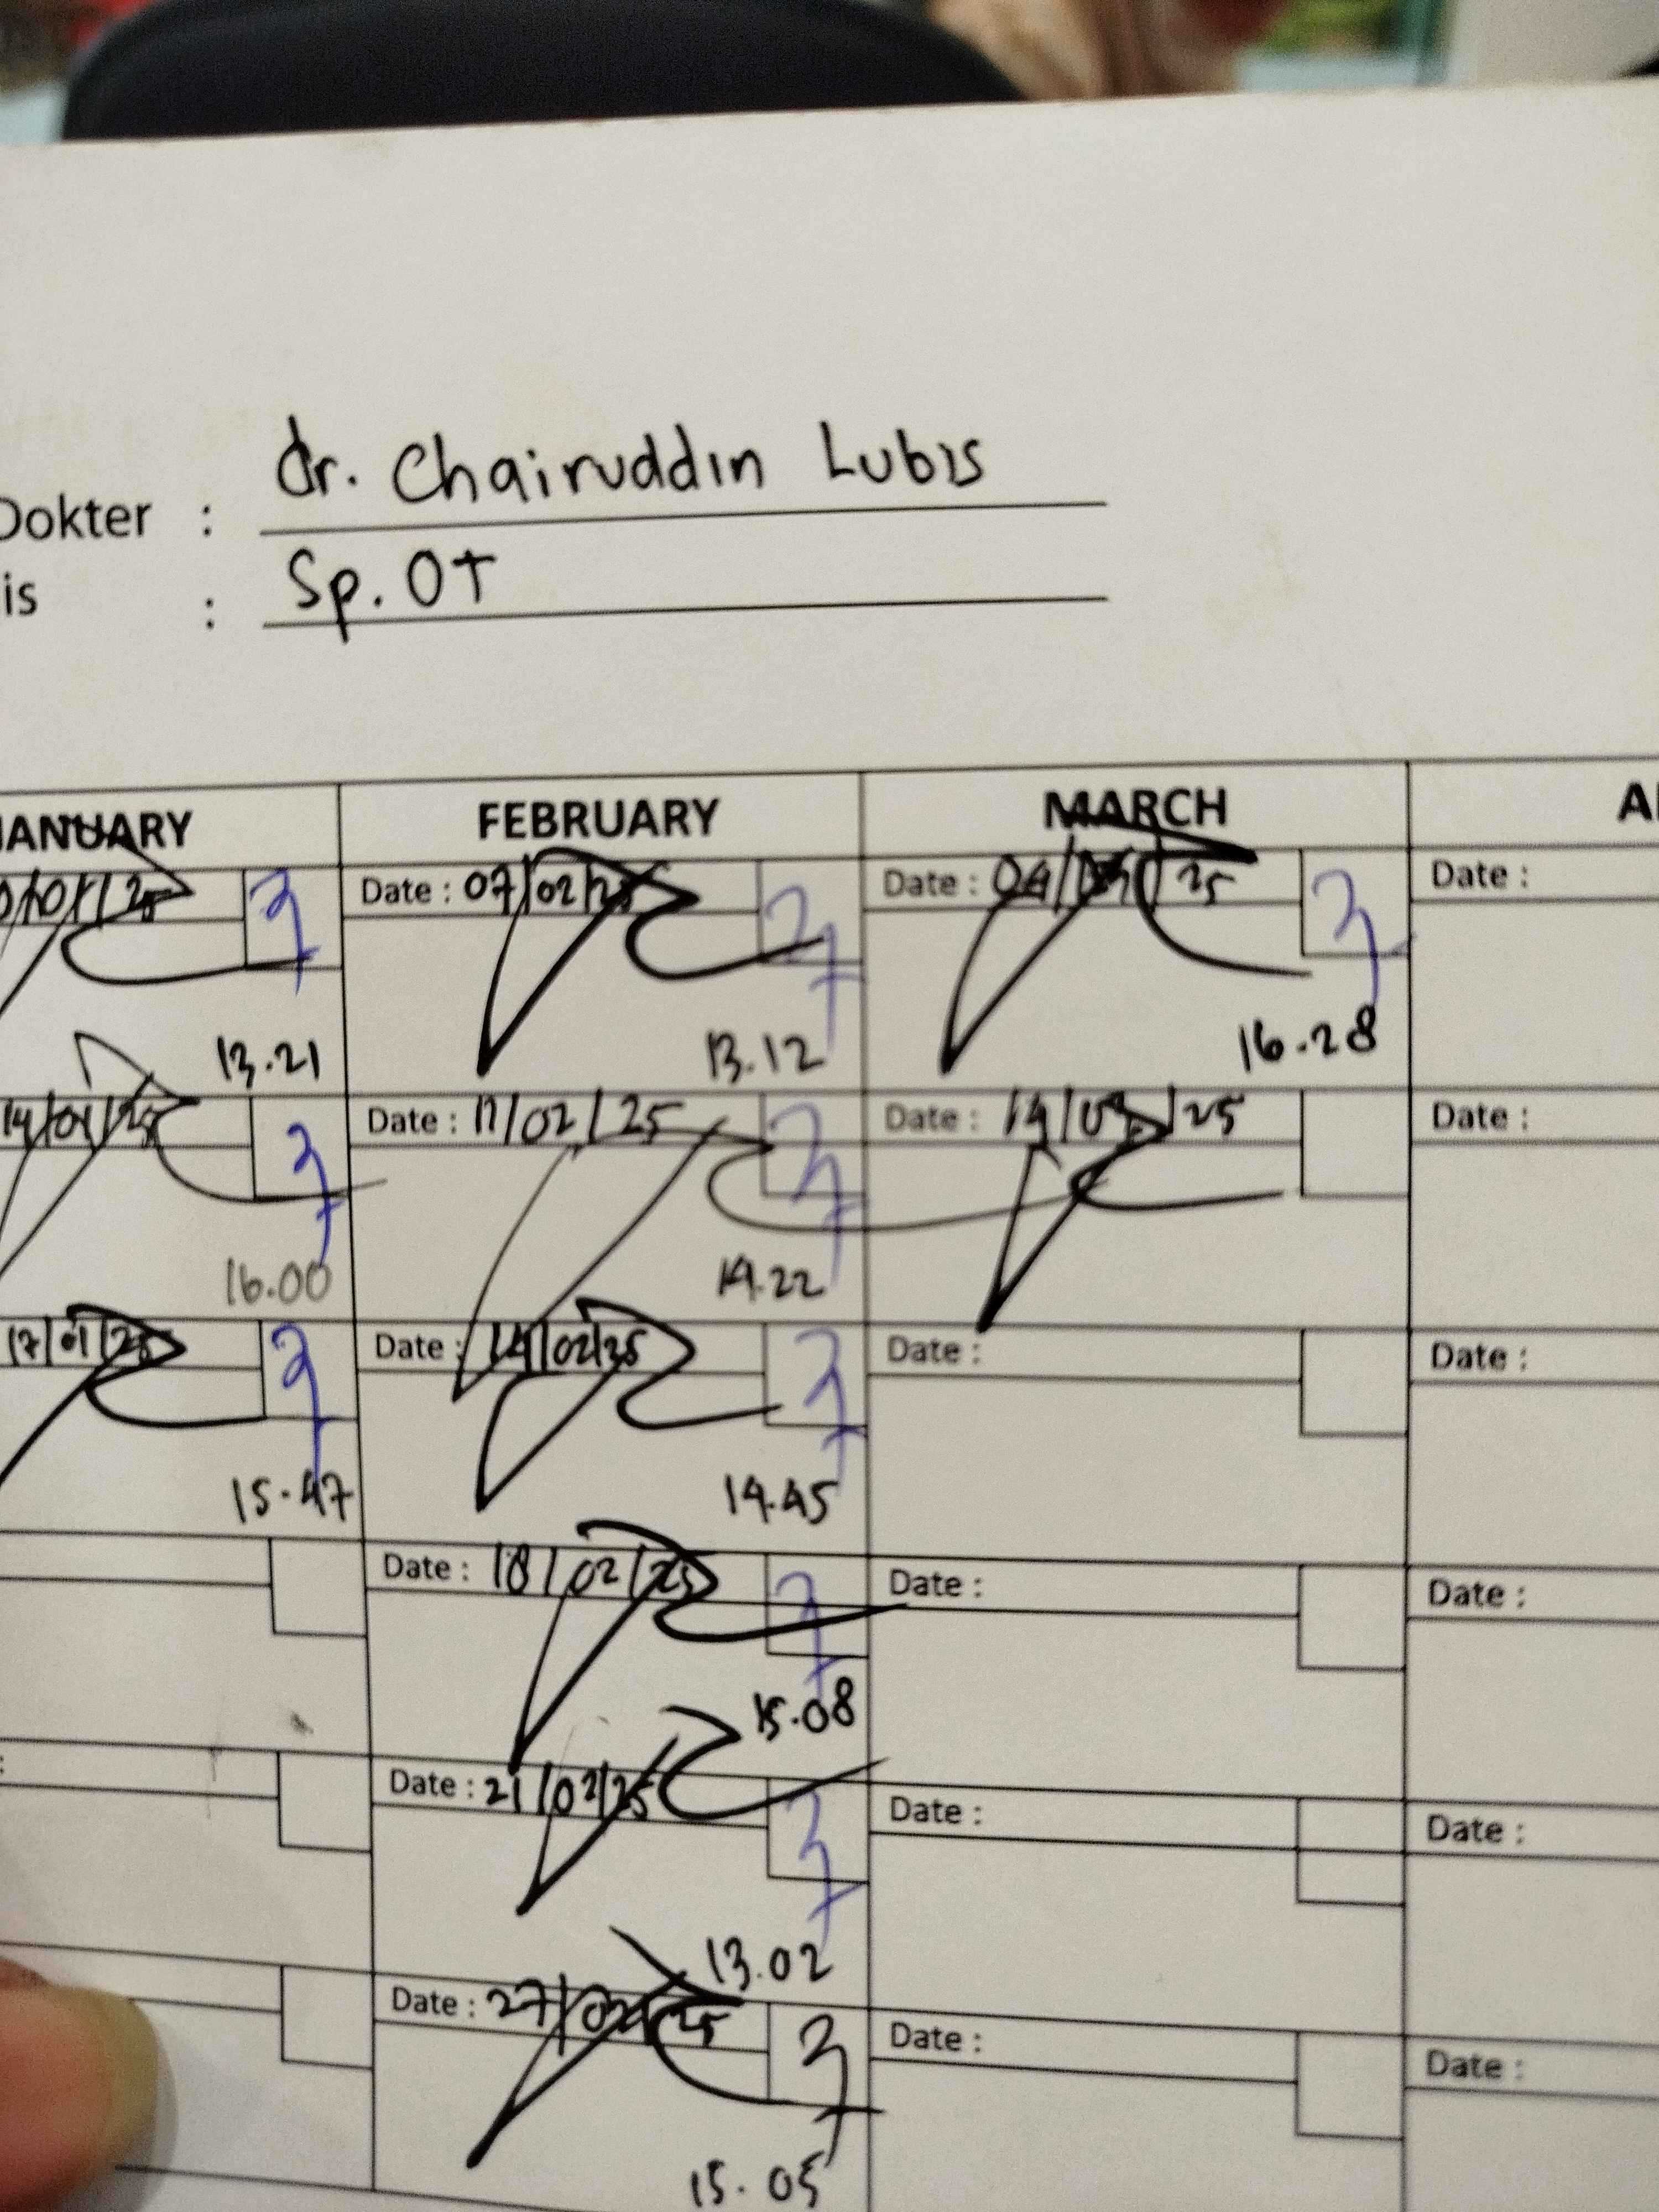 dr. Chairuddin Lubis
Dokter :
is : Sp. OT
JANUARY FEBRUARY MARCH
Date : 07/02/25 Date : 25 Date :
13.21 13.12 16.28
14/01/25 Date : 11/02/25 Date : 14/03/25 Date :
16.00 14.22
17/01/25 Date : 14/02/25 Date : Date :
15.47 14.45
Date : 18/02/25 Date : Date :
15.08
Date : 21/02/25 Date : Date :
13.02
Date : 27/02/25 Date : Date :
15.05